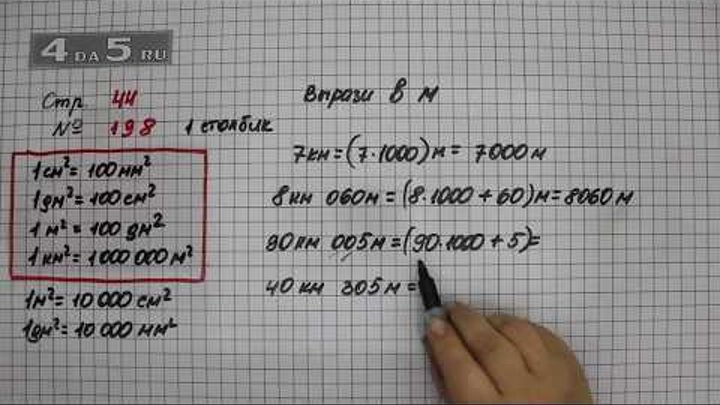 4 DA 5. RU
Стр. 44
№ 198 1 столбик
1 см² = 100 мм²
1 дм² = 100 см²
1 м² = 100 дм²
1 км² = 1 000 000 м²
1 м² = 10 000 см²
1 дм² = 10 000 мм²
Вырази в м
7 км = (7·1000) м = 7000 м
8 км 060 м = (8·1000 + 60) м = 8060 м
90 км 005 м = (90·1000 + 5) =
40 км 305 м =